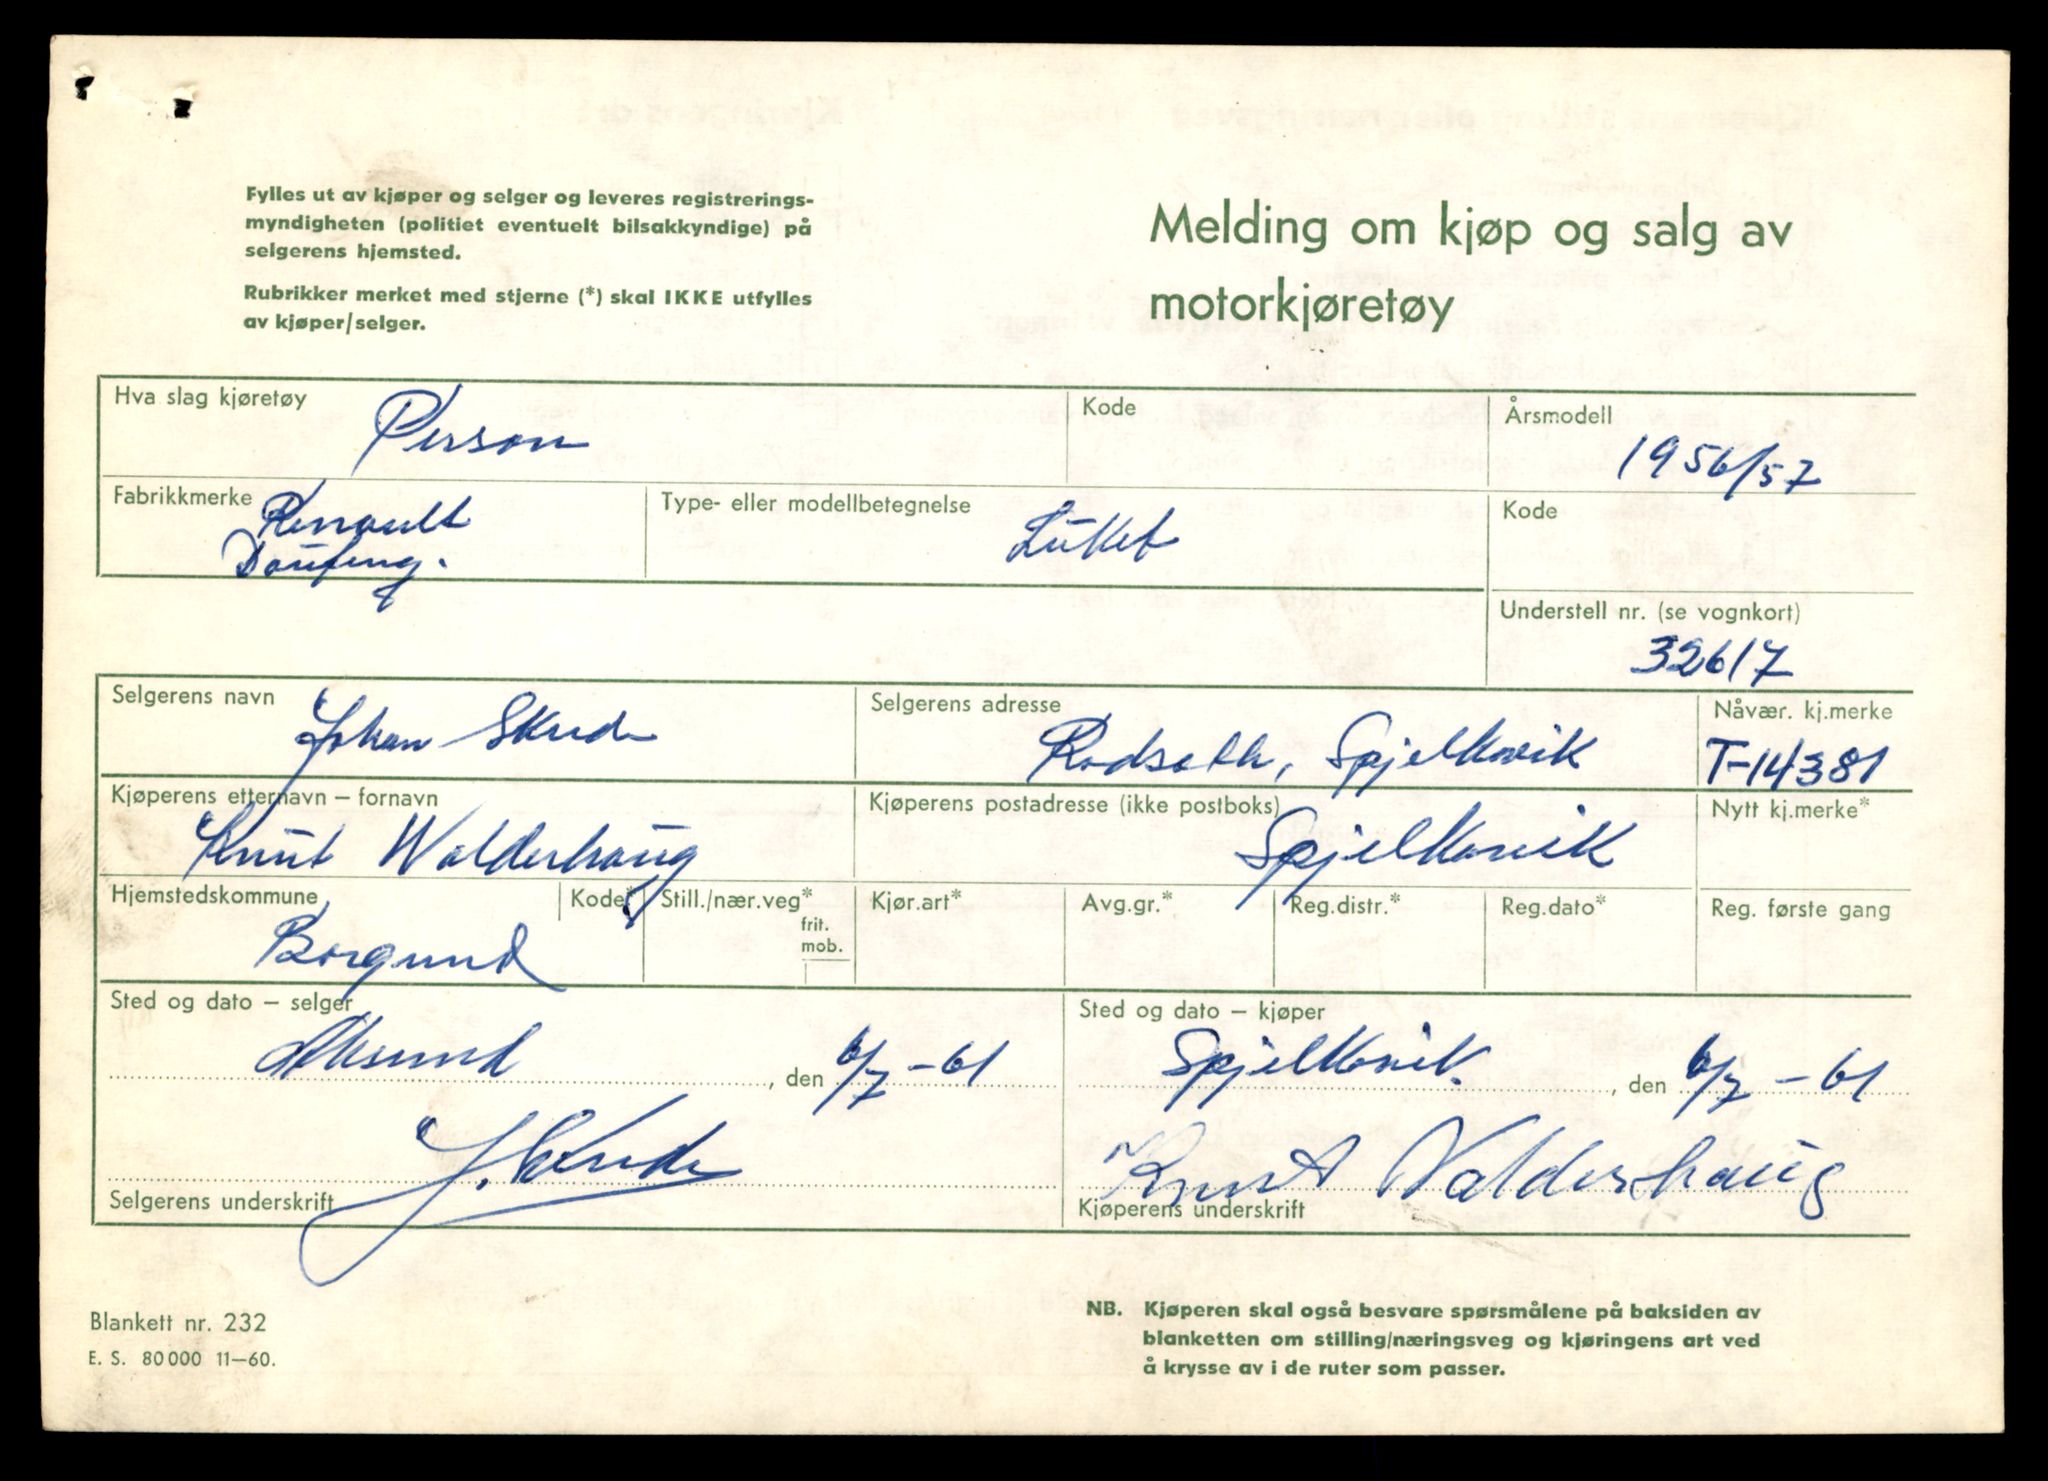 Fylles ut av kjøper og selger og leveres registrerings-
myndigheten (politiet eventuelt bilsakkyndige) på
selgerens hjemsted.
Rubrikker merket med stjerne (*) skal IKKE utfylles
av kjøper/selger.
Melding om kjøp og salg av
motorkjøretøy
Hva slag kjøretøy
Person
Kode
Årsmodell
1956/57
Fabrikkmerke
Renault
Doufing.
Type- eller modellbetegnelse
Lukket
Kode
Understell nr. (se vognkort)
32617
Selgerens navn
Johan Skude
Selgerens adresse
Rodseth, Spjelkavik
Nåvær. kj.merke
T-14381
Kjøperens etternavn – fornavn
Knut Walderhaug
Kjøperens postadresse (ikke postboks)
Spjelkavik
Nytt kj.merke*
Hjemstedskommune
Borgund
Kode*
Still./nær.veg*
frit.
mob.
Kjør.art*
Avg.gr.*
Reg.distr.*
Reg.dato*
Reg. første gang
Sted og dato – selger
Ålesund, den 6/7 – 61
Sted og dato – kjøper
Spjelkavik, den 6/7 – 61
J. Skude
Selgerens underskrift
Knut Valderhaug
Kjøperens underskrift
Blankett nr. 232
E. S. 80 000 11—60.
NB. Kjøperen skal også besvare spørsmålene på baksiden av
blanketten om stilling/næringsveg og kjøringens art ved
å krysse av i de ruter som passer.